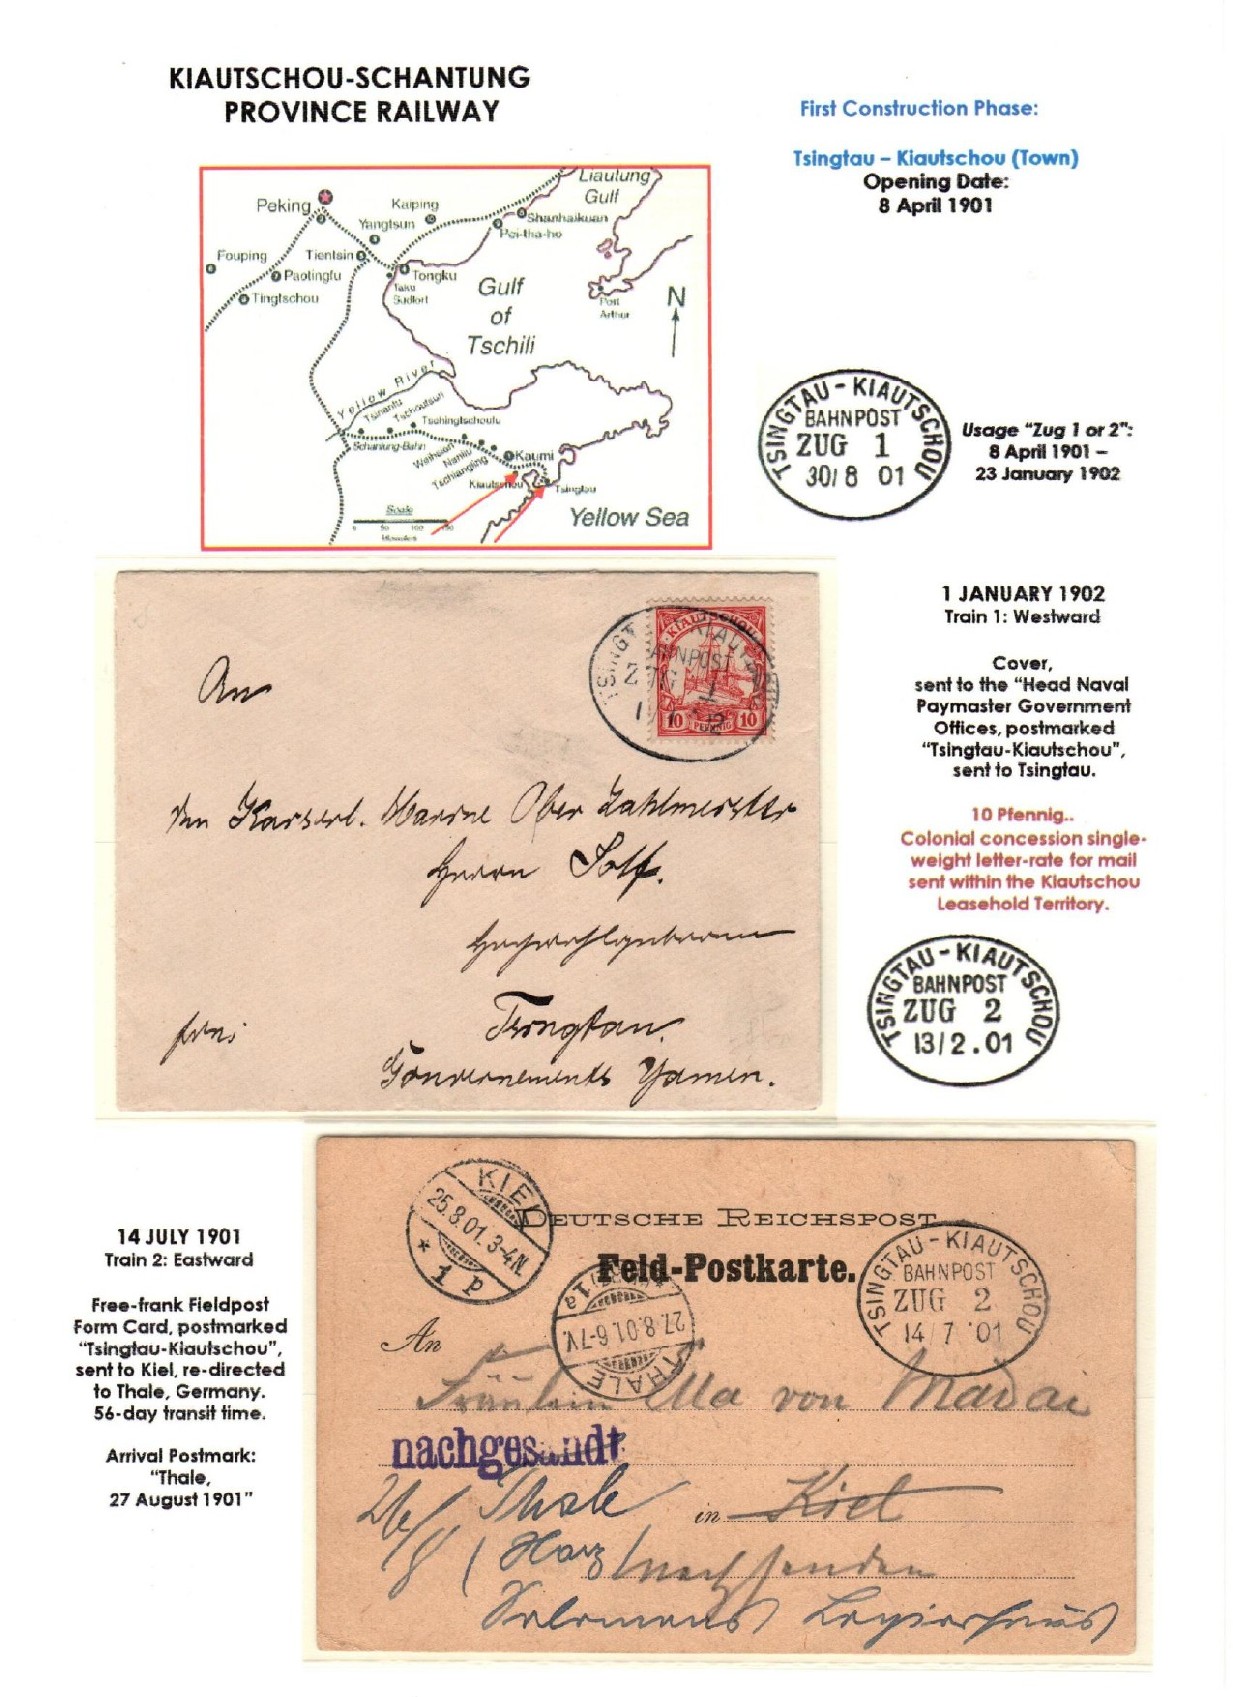 KIAUTSCHOU-SCHANTUNG
PROVINCE RAILWAY
First Construction Phase:
Tsingtau – Kiautschou (Town)
Opening Date:
8 April 1901
Liautung
Gulf
Peking
Kaiping
Yangtsun
Shanhaikuan
Pei-tha-ho
Fouping
Tientsin
Paotingfu
Tongku
Taku
Tingtschou
Gulf
of
Tschili
Port
Arthur
N
Yellow River
Tsinanfu
Tschoutsun
Tschingtschoufu
Schantung-Bahn
Weihsien
Nanliu
Tschiangling
Kaumi
Kiautschou
Tsingtau
Scale
0 50 100 150
Kilometres
Yellow Sea
TSINGTAU - KIAUTSCHOU
BAHNPOST
ZUG 1
30/8 01
Usage "Zug 1 or 2":
8 April 1901 –
23 January 1902
1 JANUARY 1902
Train 1: Westward
Cover,
sent to the "Head Naval
Paymaster Government
Offices, postmarked
"Tsingtau-Kiautschou",
sent to Tsingtau.
10 Pfennig..
Colonial concession single-
weight letter-rate for mail
sent within the Kiautschou
Leasehold Territory.
TSINGTAU - KIAUTSCHOU
BAHNPOST
ZUG 2
13/2.01
KIAUTSCHOU
10 PFENNIG 10
BAHNPOST
ZUG 1
An
den Kaiserl. Marine Ober Zahlmeister
Herrn Solf.
Hochwohlgeboren
frei
Tsingtau.
Gouvernements Yamen.
14 JULY 1901
Train 2: Eastward
Free-frank Fieldpost
Form Card, postmarked
"Tsingtau-Kiautschou",
sent to Kiel, re-directed
to Thale, Germany.
56-day transit time.
Arrival Postmark:
"Thale,
27 August 1901"
KIEL
25.8.01.3-4N.
* 1 p
DEUTSCHE REICHSPOST
Feld-Postkarte.
TSINGTAU - KIAUTSCHOU
BAHNPOST
ZUG 2
14/7 '01
THALE
27.8.01.6-7V.
1a
An
Fräulein Ella von Madai
nachgesandt
26/8 Thale in Kiel
(Harz) nachsenden
Salomons Logierhaus